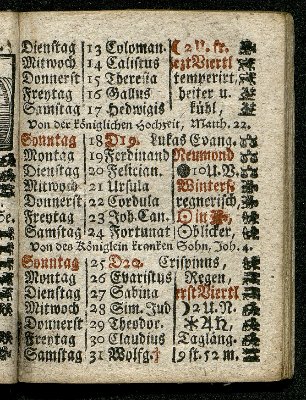 Dienſtag 13 Coloman. ☾ 2 U. fr.
Mitwoch 14 Caliſtus ezt Viertl
Donnerſt 15 Thereſia temperirt,
Freytag 16 Gallus heiter u.
Samſtag 17 Hedwigis kühl,
Von der königlichen Hochzeit, Matth. 22.
Sonntag 18 D19. Lukas Evang.
Montag 19 Ferdinand Neumond
Dienſtag 20 Felician. 10 U. V.
Mitwoch 21 Urſula Winterſ.
Donnerſt 22 Cordula regneriſch,
Freytag 23 Joh. Can. ☉ in
Samſtag 24 Fortunat blicker,
Von des Königlein kranken Sohn, Joh. 4.
Sonntag 25 D20. Criſpinus,
Montag 26 Evariſtus Regen,
Dienſtag 27 Sabina erſt Viertl
Mitwoch 28 Sim. Jud ☽ 2 U. N.
Donnerſt 29 Theodor.
Freytag 30 Claudius Taglang.
Samſtag 31 Wolfg. † 9 ſt. 52 m.